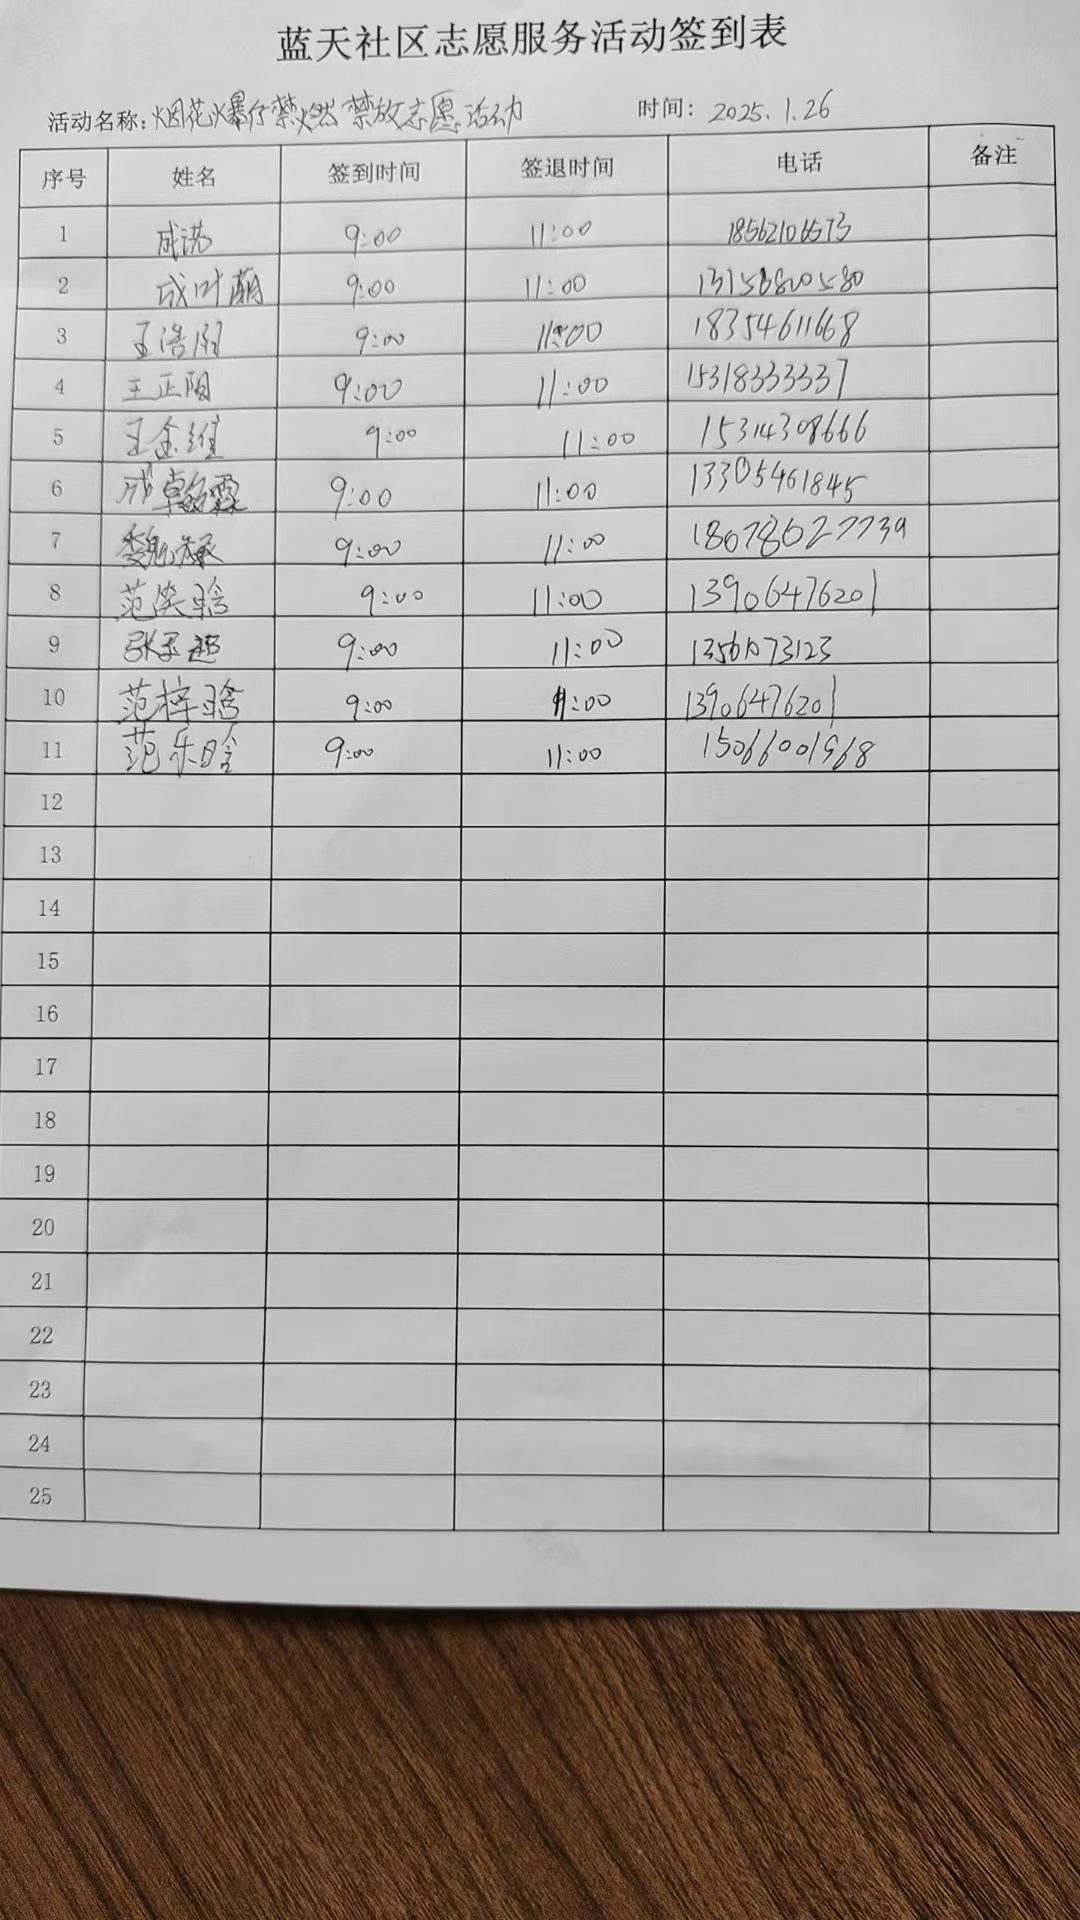 蓝天社区志愿服务活动签到表
活动名称：烟花爆竹禁燃禁放志愿活动 时间：2025.1.26
序号 姓名 签到时间 签退时间 电话 备注
1 成诺 9:00 11:00 18562106573
2 成叶萌 9:00 11:00 13156800580
3 王浩 9:00 11:00 18354611668
4 王正阳 9:00 11:00 15318333337
5 王金维 9:00 11:00 15314308666
6 成卓霖 9:00 11:00 13305461845
7 魏 9:00 11:00 18078627739
8 范笑晗 9:00 11:00 13906476201
9 张子超 9:00 11:00
10 范梓晗 9:00 11:00 13906476201
11 范乐晗 9:00 11:00 15066001968
12
13
14
15
16
17
18
19
20
21
22
23
24
25